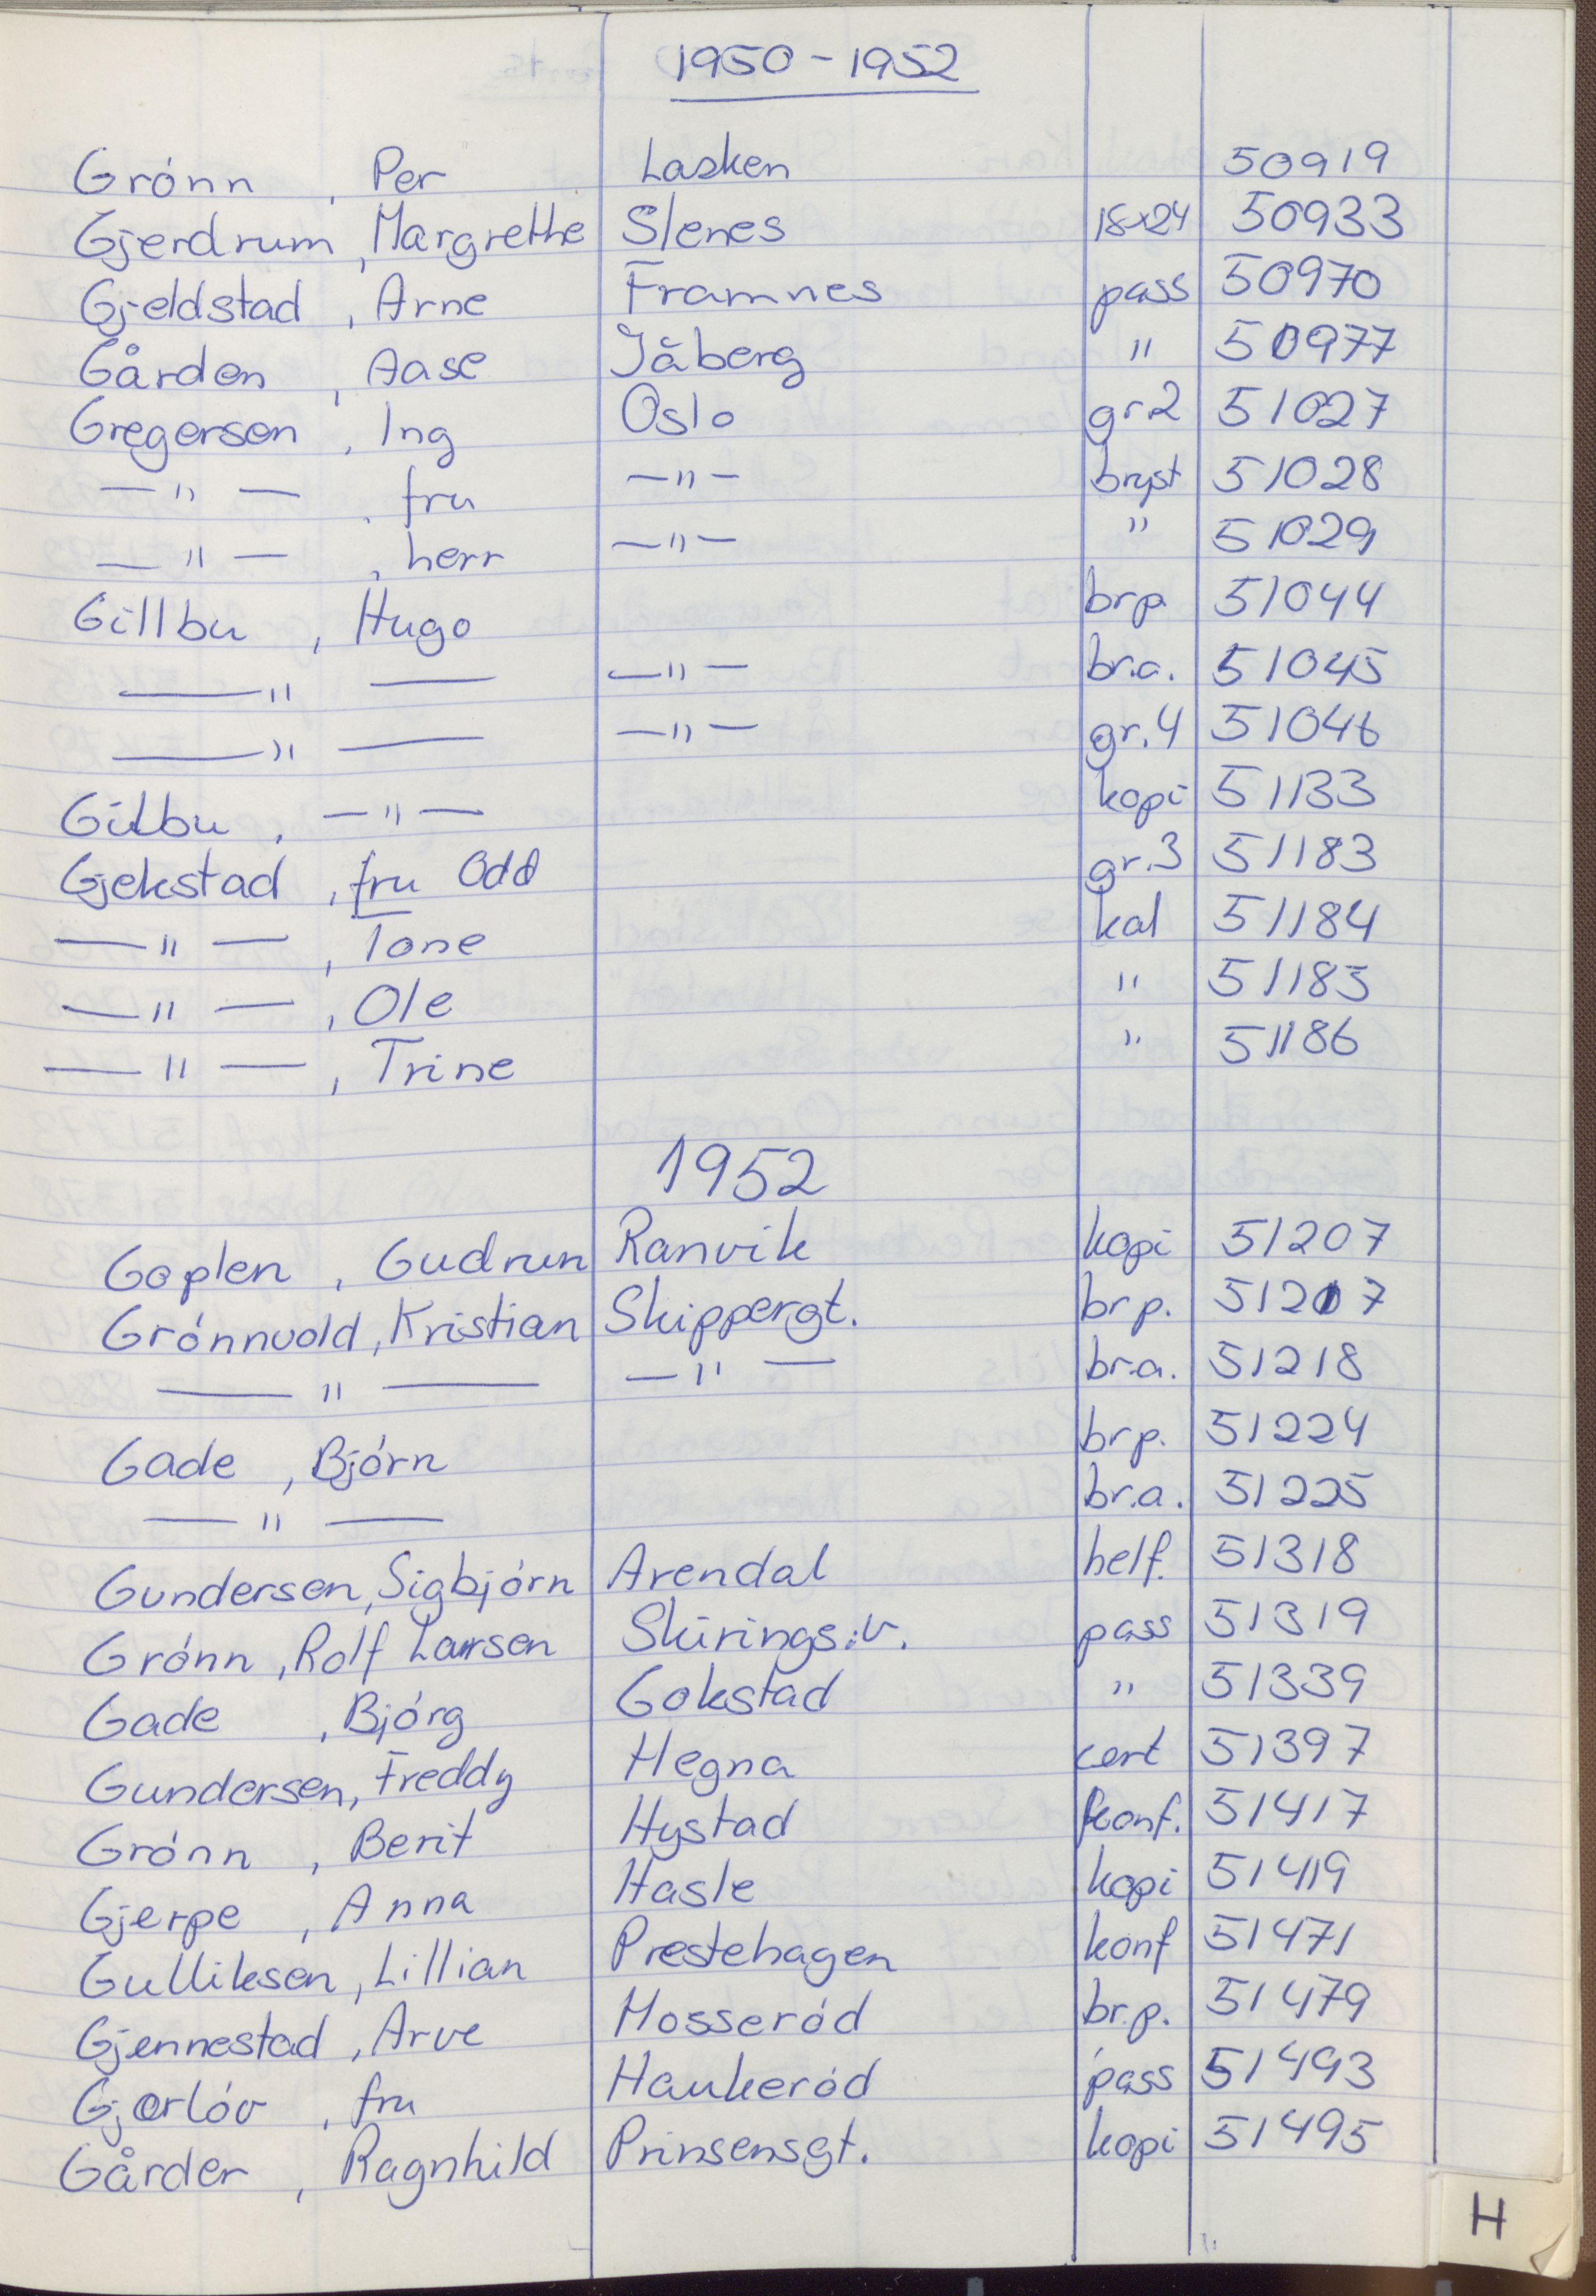 1950 - 1952
Grónn , Per Lasken 50919
Gjerdrum , Margrethe Slenes 18x24 50933
Gjeldstad , Arne Framnes pass 50970
Gården , Aase Jåberg " 50977
Gregersen , Ing Oslo gr.2 51027
— " — , fru — " — bryst 51028
— " — , herr — " — " 51029
Gillbu , Hugo brp 51044
— " — — " — br.a. 51045
— " — — " — gr.4 51046
Gilbu , — " — kopi 51133
Gjekstad , fru Odd gr.3 51183
— " — , Tone kal 51184
— " — , Ole " 51185
— " — , Trine " 51186
1952
Goplen , Gudrun Ranvik kopi 51207
Grónnvold , Kristian Skippergt. brp. 51207
— " — — " — br.a. 51218
Gade , Bjórn brp. 51224
— " — br.a. 51225
Gundersen , Sigbjórn Arendal helf. 51318
Grónn , Rolf Larsen Skirings.v. pass 51319
Gade , Bjórg Gokstad " 51339
Gundersen , Freddy Hegna cert 51397
Grónn , Berit Hystad konf. 51417
Gjerpe , Anna Hasle kopi 51419
Gulliksen , Lillian Prestehagen konf 51471
Gjennestad , Arve Mosseród br.p. 51479
Gjerlóv , fru Haukeród pass 51493
Gårder , Ragnhild Prinsensgt. kopi 51495
H